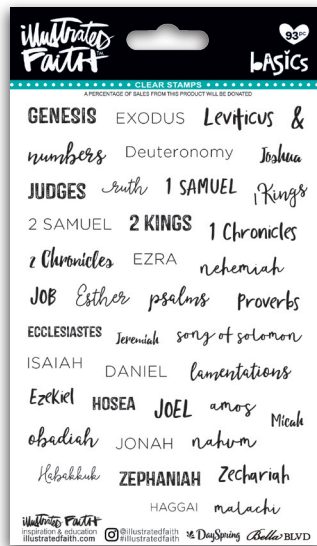 illustrated Faith™
93 pc
basics
CLEAR STAMPS
A PERCENTAGE OF SALES FROM THIS PRODUCT WILL BE DONATED
GENESIS EXODUS Leviticus &
numbers Deuteronomy Joshua
JUDGES ruth 1 SAMUEL 1 Kings
2 SAMUEL 2 KINGS 1 Chronicles
2 Chronicles EZRA nehemiah
JOB Esther psalms Proverbs
ECCLESIASTES Jeremiah song of solomon
ISAIAH DANIEL lamentations
Ezekiel HOSEA JOEL amos Micah
obadiah JONAH nahum
Habakkuk ZEPHANIAH Zechariah
HAGGAI malachi
illustrated Faith
inspiration & education
illustratedfaith.com
@illustratedfaith
#illustratedfaith
DaySpring
Bella BLVD